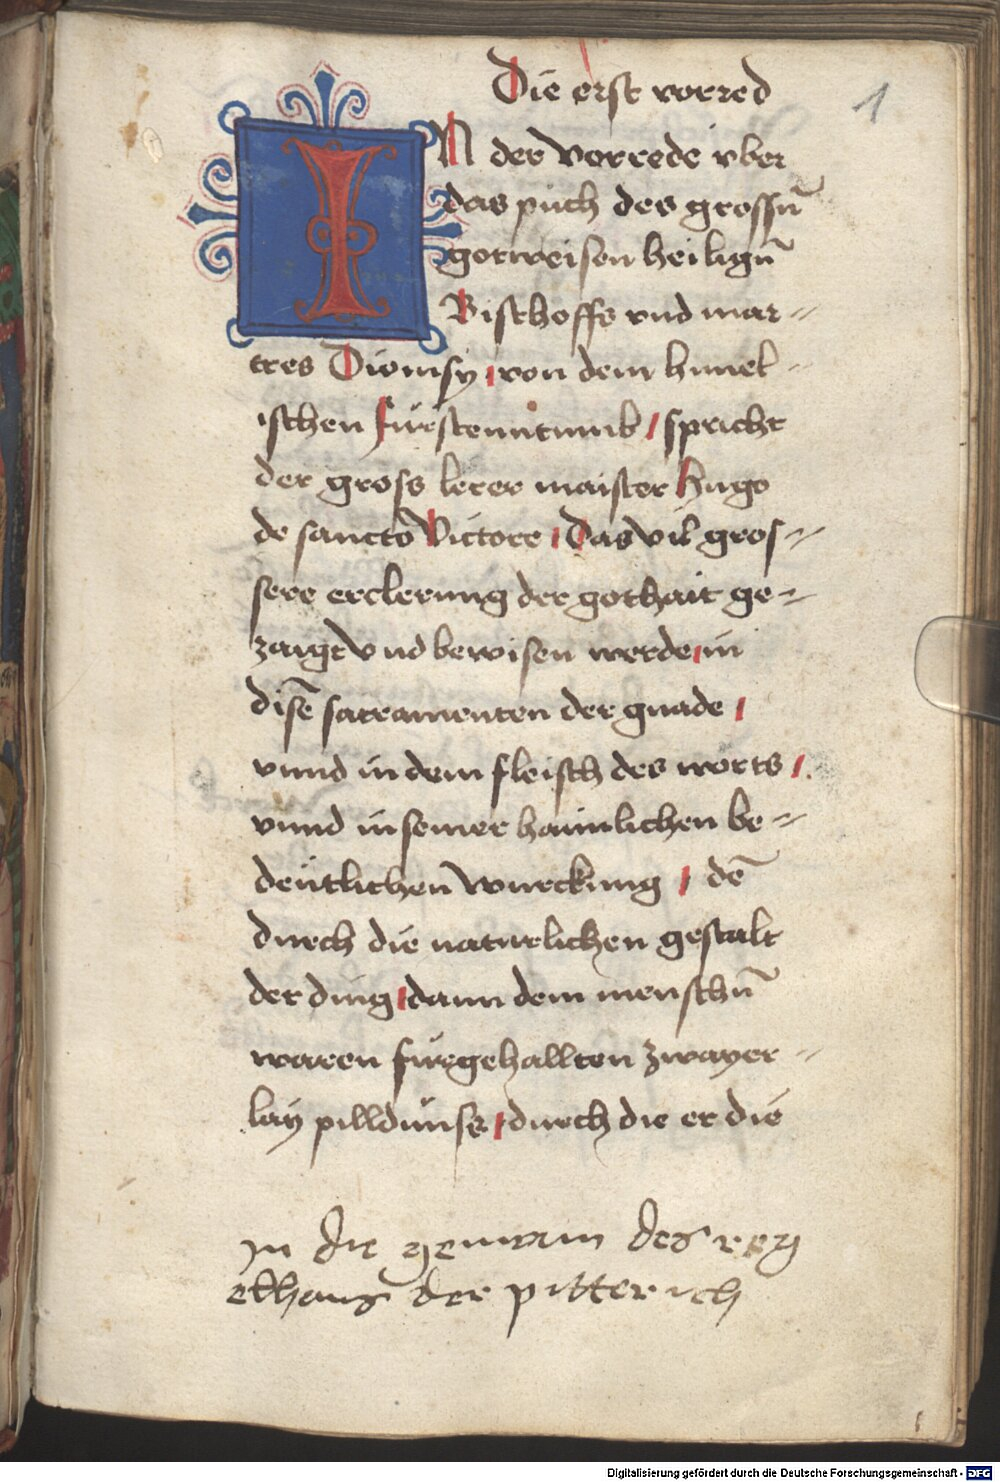 Die erst vorred
1
IN der Vorrede vber
das puch des grossn̄
gotweisen heilign̄
Bischoffs vnd mar-
tres Dionisy / von dem himel-
ischen furstenntumb / spricht
der gross lerer maister Hugo
de sancto Victore / Das vil gros-
sere erclerung der gothait ge-
zaigt Vnd bewisen werde / in
disē sacramenten der gnade /
vnnd in dem fleisch des worts /
vnnd in seiner haimlichen be-
deutlichen wurckung / dē
durch die naturlichen gestalt
der ding / dann dem menschn̄
waren furgehallten zwayer-
lay pilldnuss / durch die er die
In die gemain des reg
elhaus der pitterich
Digitalisierung gefördert durch die Deutsche Forschungsgemeinschaft - DFG